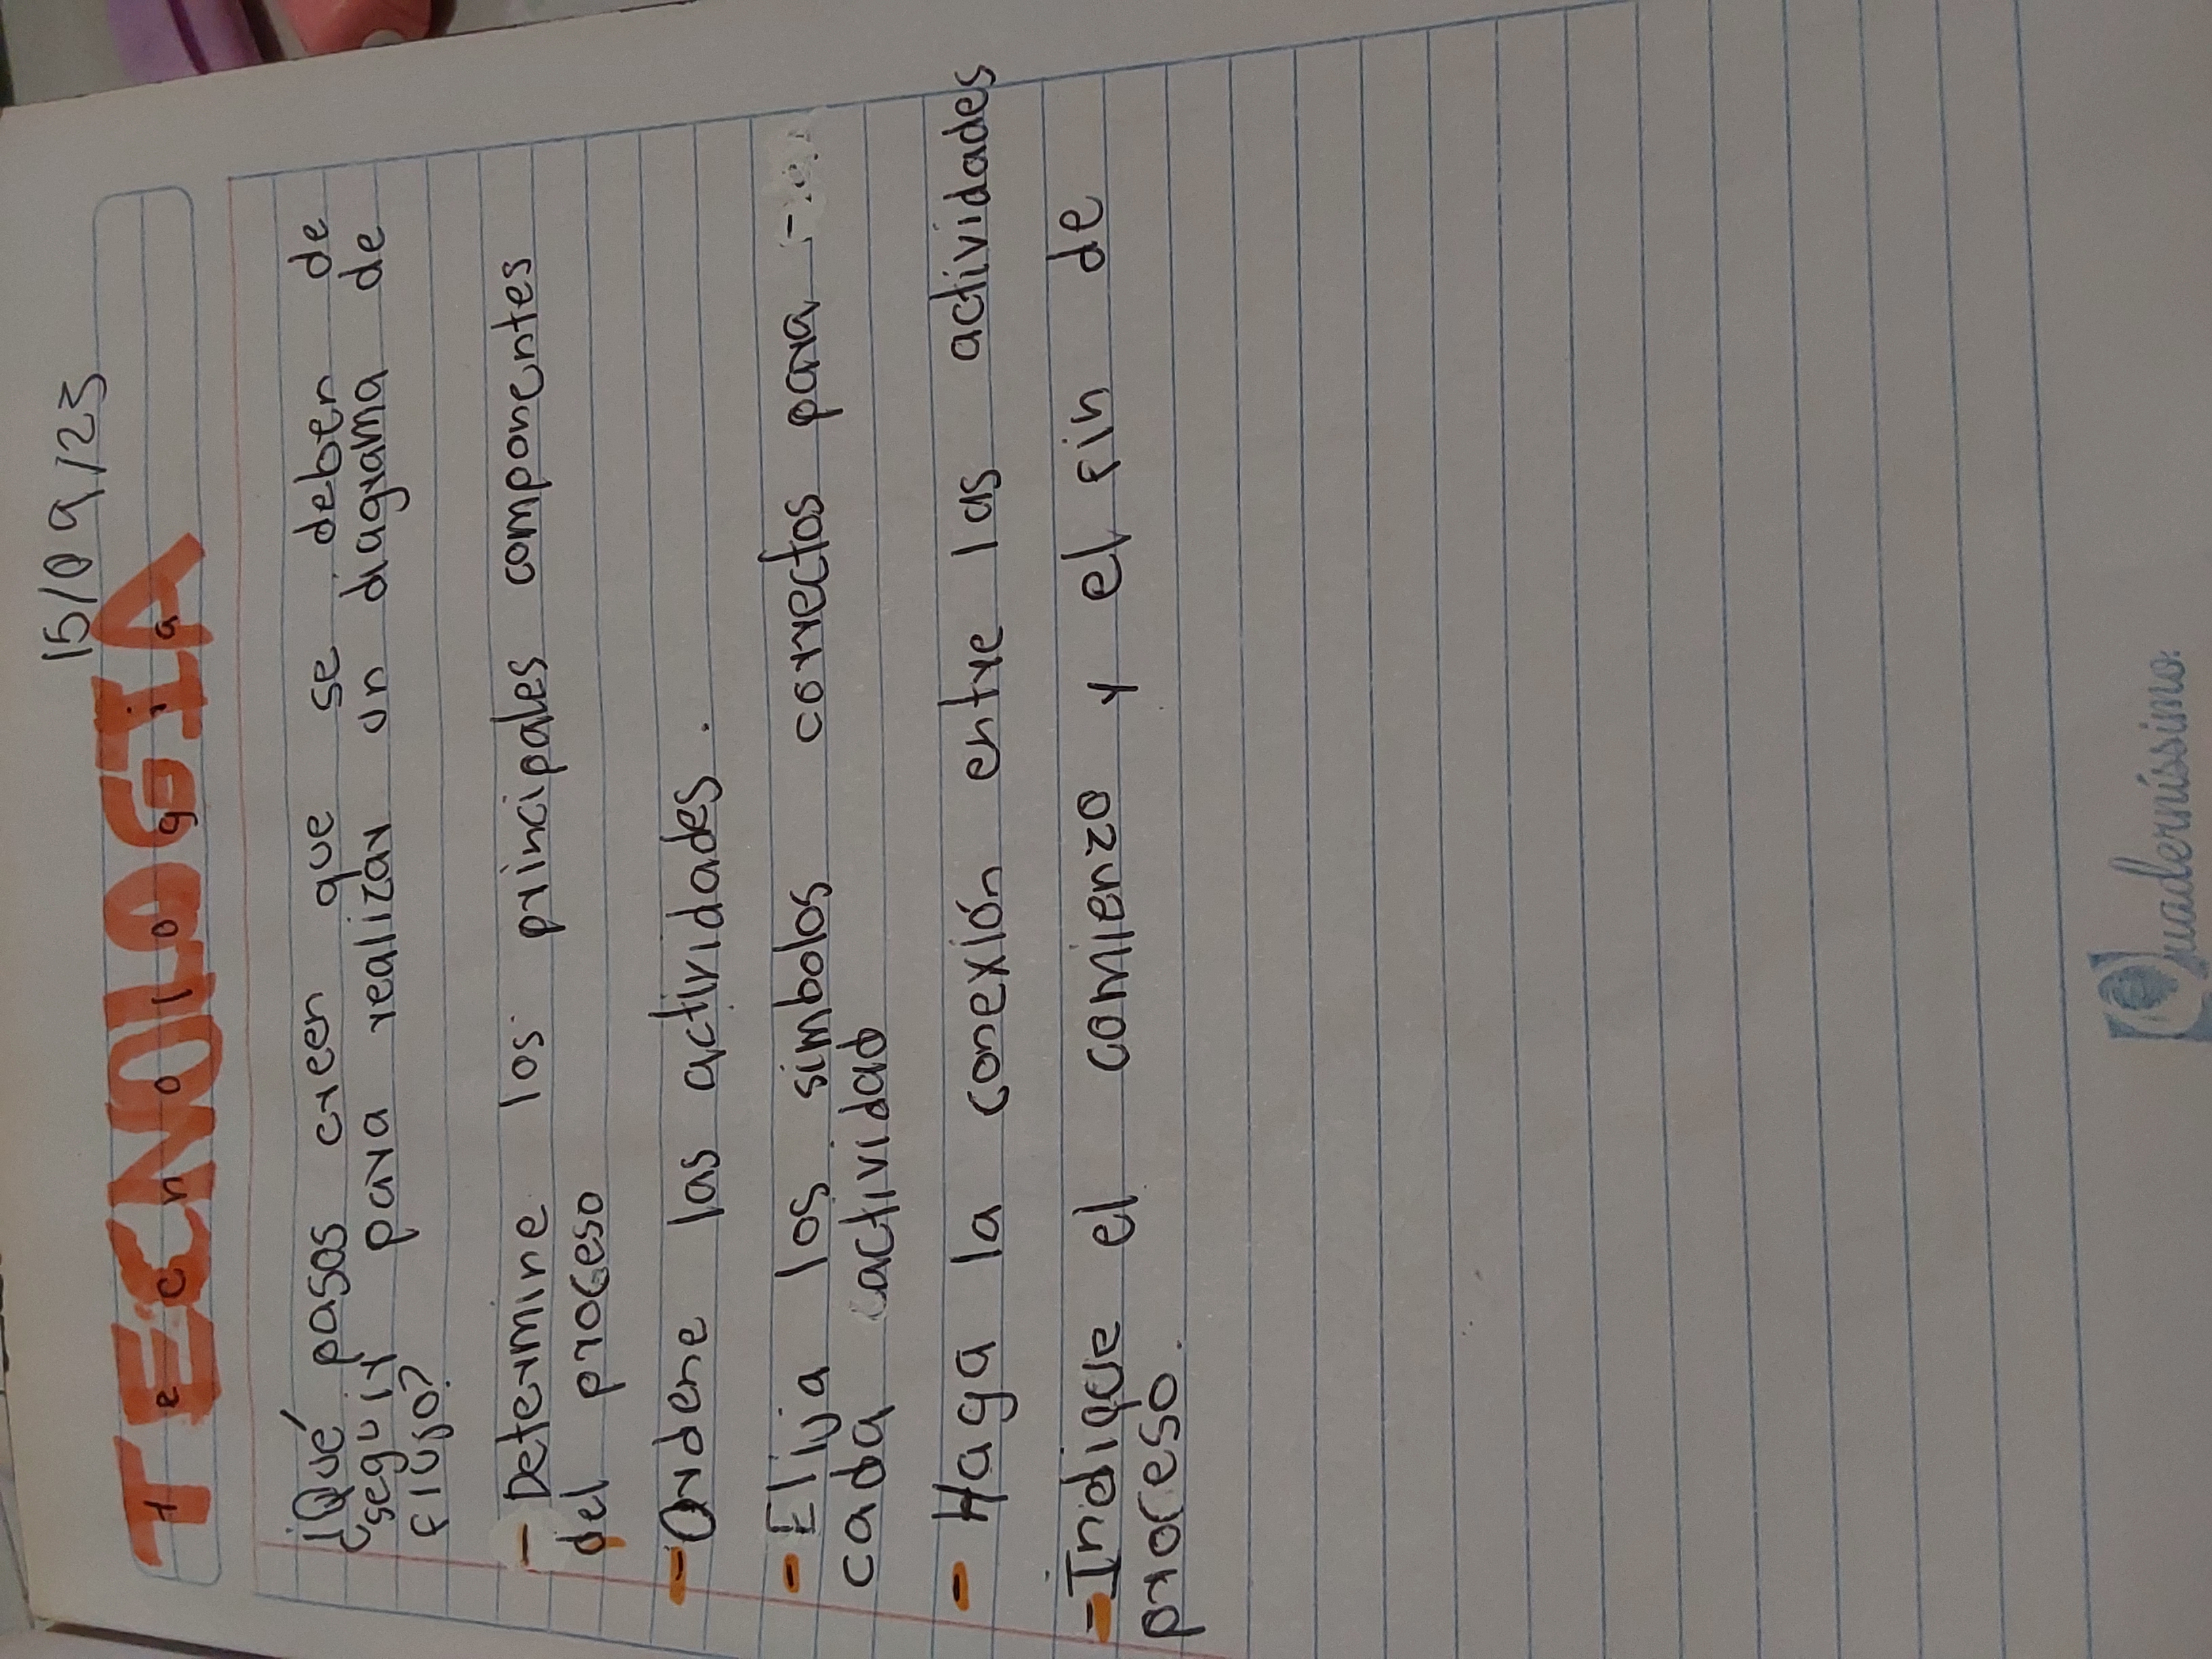 15/09/23
TECNOLOGIA
Tecnologia
¿Qué pasos creen que se deben de
seguir para realizar un diagrama de
flujo?
- Determine los principales componentes
del proceso
- Ordene las actividades.
- Elija los simbolos correctos para
cada actividad
- Haga la conexión entre las actividades
- Indique el comienzo y el fin de
proceso.
Quaderníssimo.